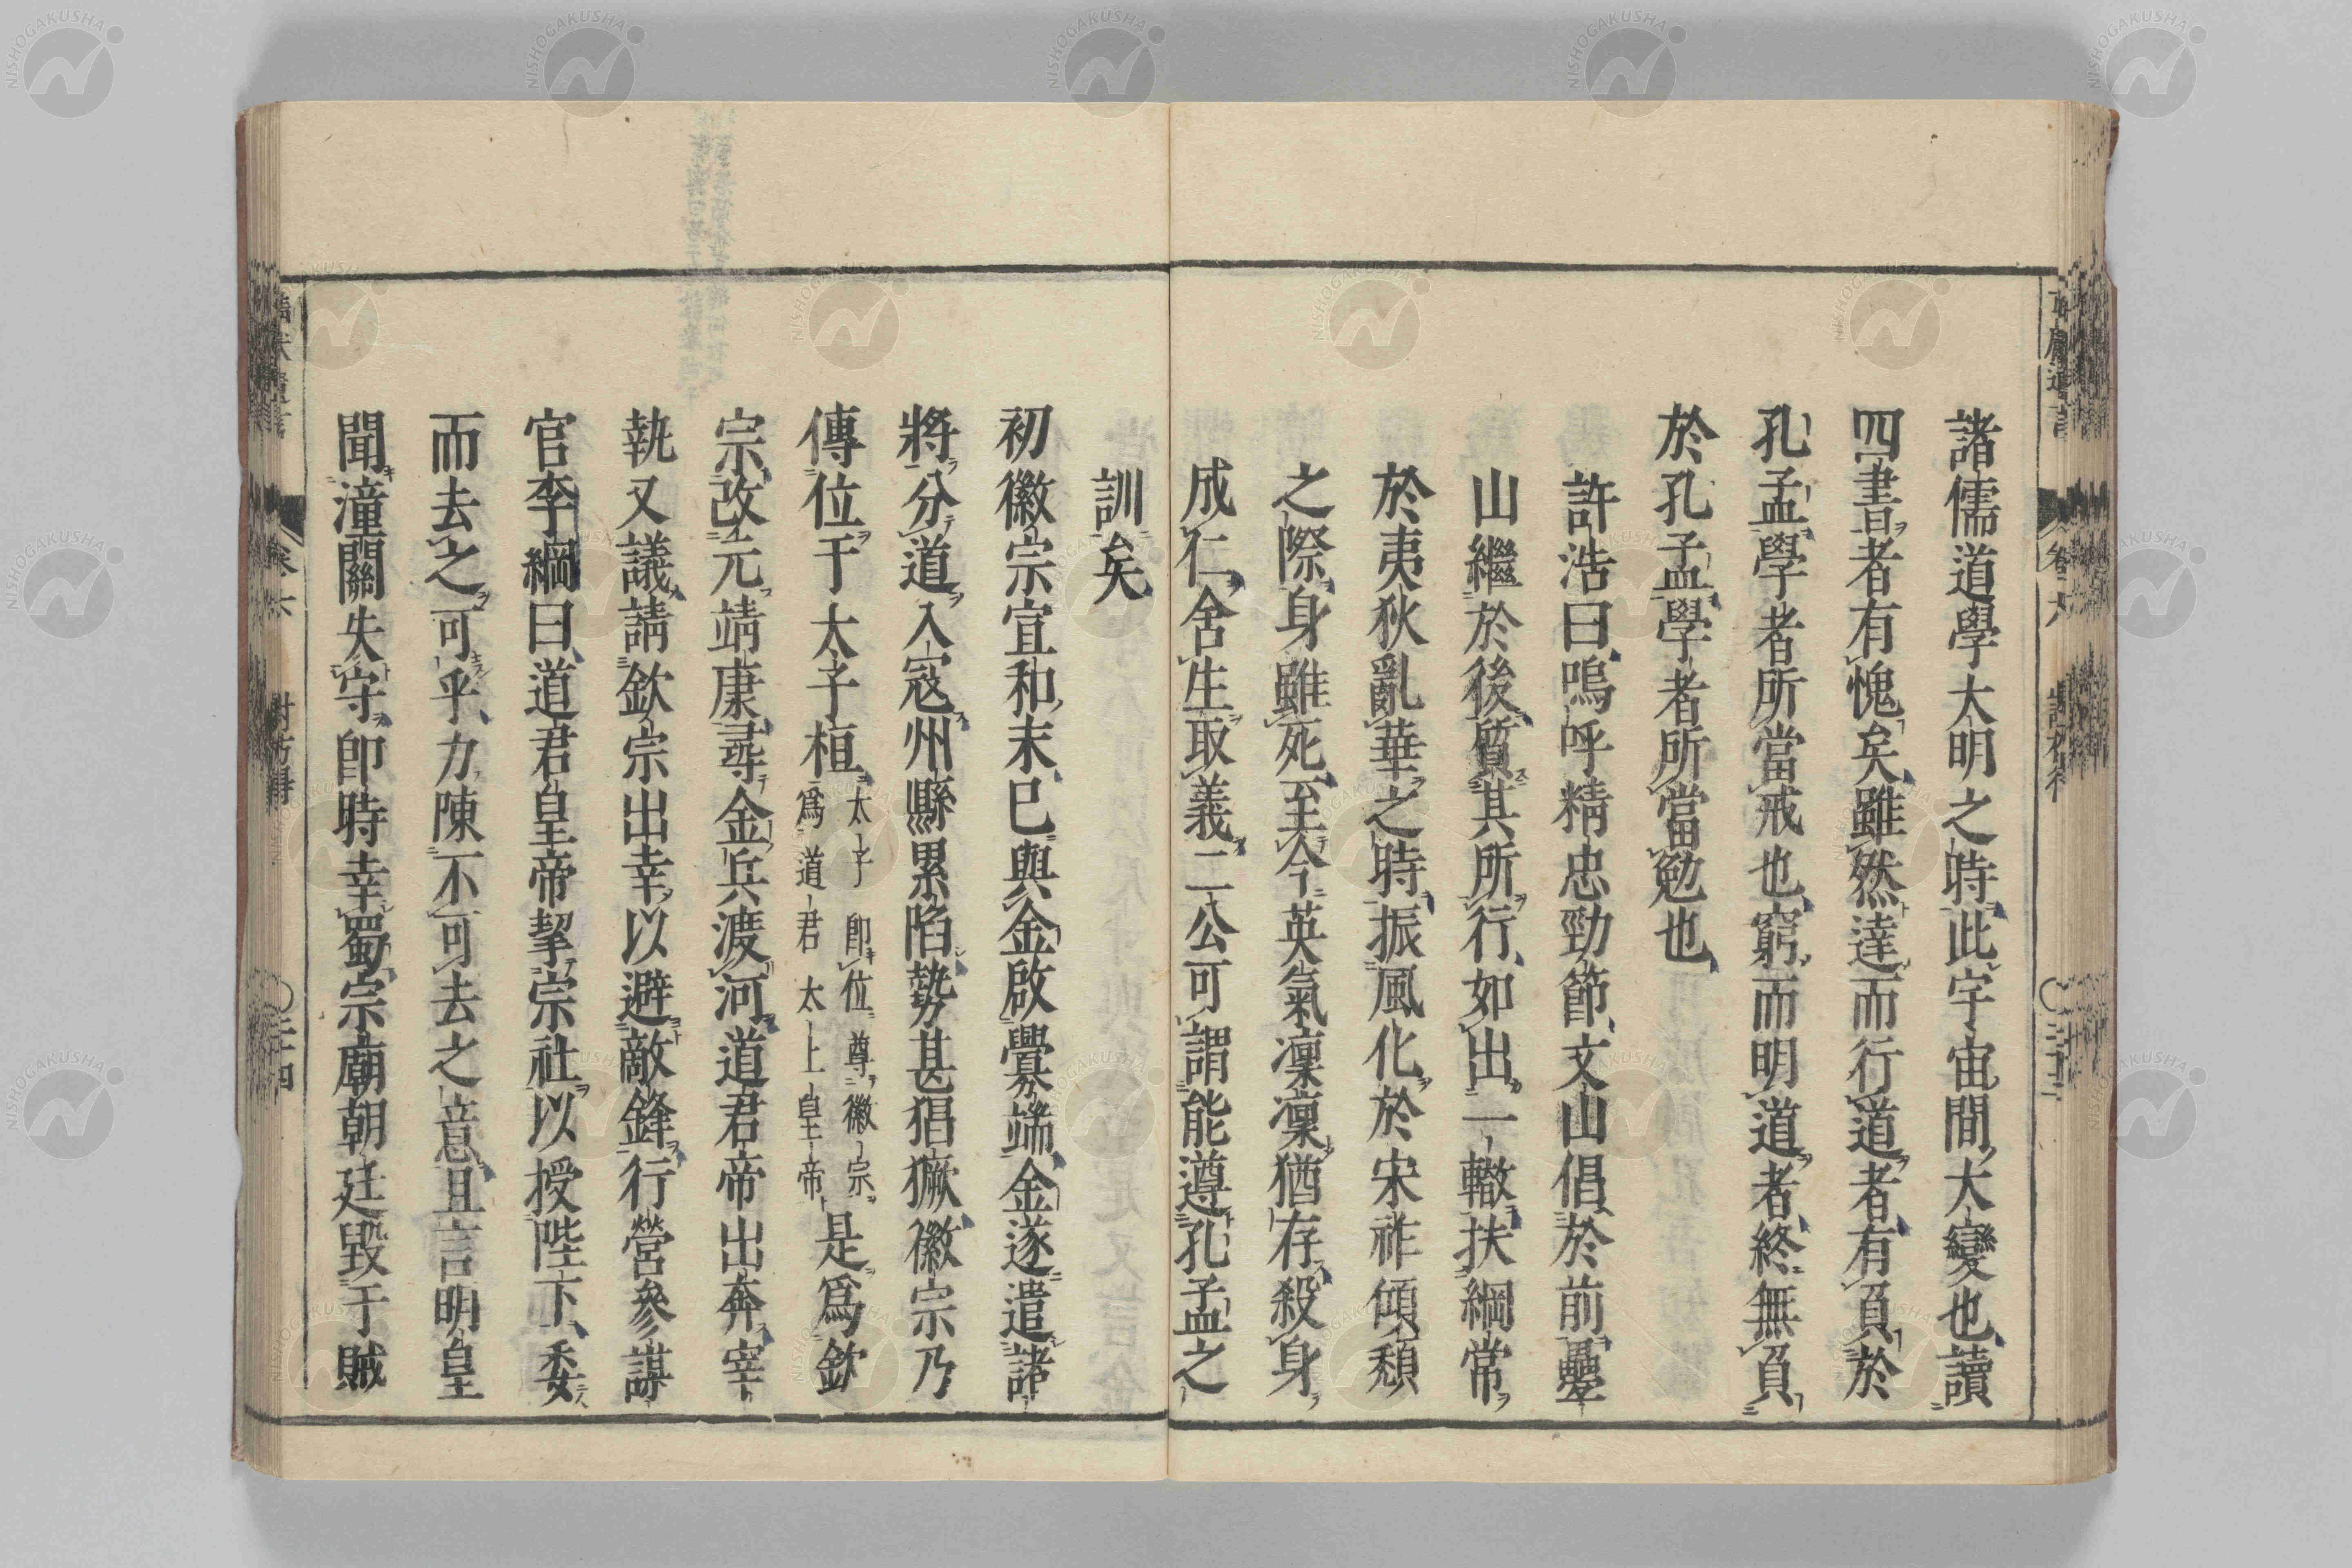 諸儒道學大明之時此宇宙間大變也讀
四書者有愧矣雖然達而行道者有負於
孔孟學者所當戒也窮而明道者終無負
於孔孟學者所當勉也
許浩曰嗚呼精忠勁節文山倡於前疊
山繼於後質其所行如出一轍扶綱常
於夷狄亂華之時振風化於宋祚傾頽
之際身雖死至今英氣凜凜猶存殺身
成仁舍生取義二公可謂能遵孔孟之
訓矣
初徽宗宣和末已與金啟釁端金遂遣諸
將分道入寇州縣累陷勢甚猖獗徽宗乃
傳位于太子桓太子即位尊徽宗爲道君太上皇帝是爲欽
宗改元靖康尋金兵渡河道君帝出奔宰
執又議請欽宗出幸以避敵鋒行營參謀
官李綱曰道君皇帝挈宗社以授陛下委
而去之可乎力陳不可去之意且言明皇
聞潼關失守即時幸蜀宗廟朝廷毀于賊
卷六
NISHOGAKUSHA